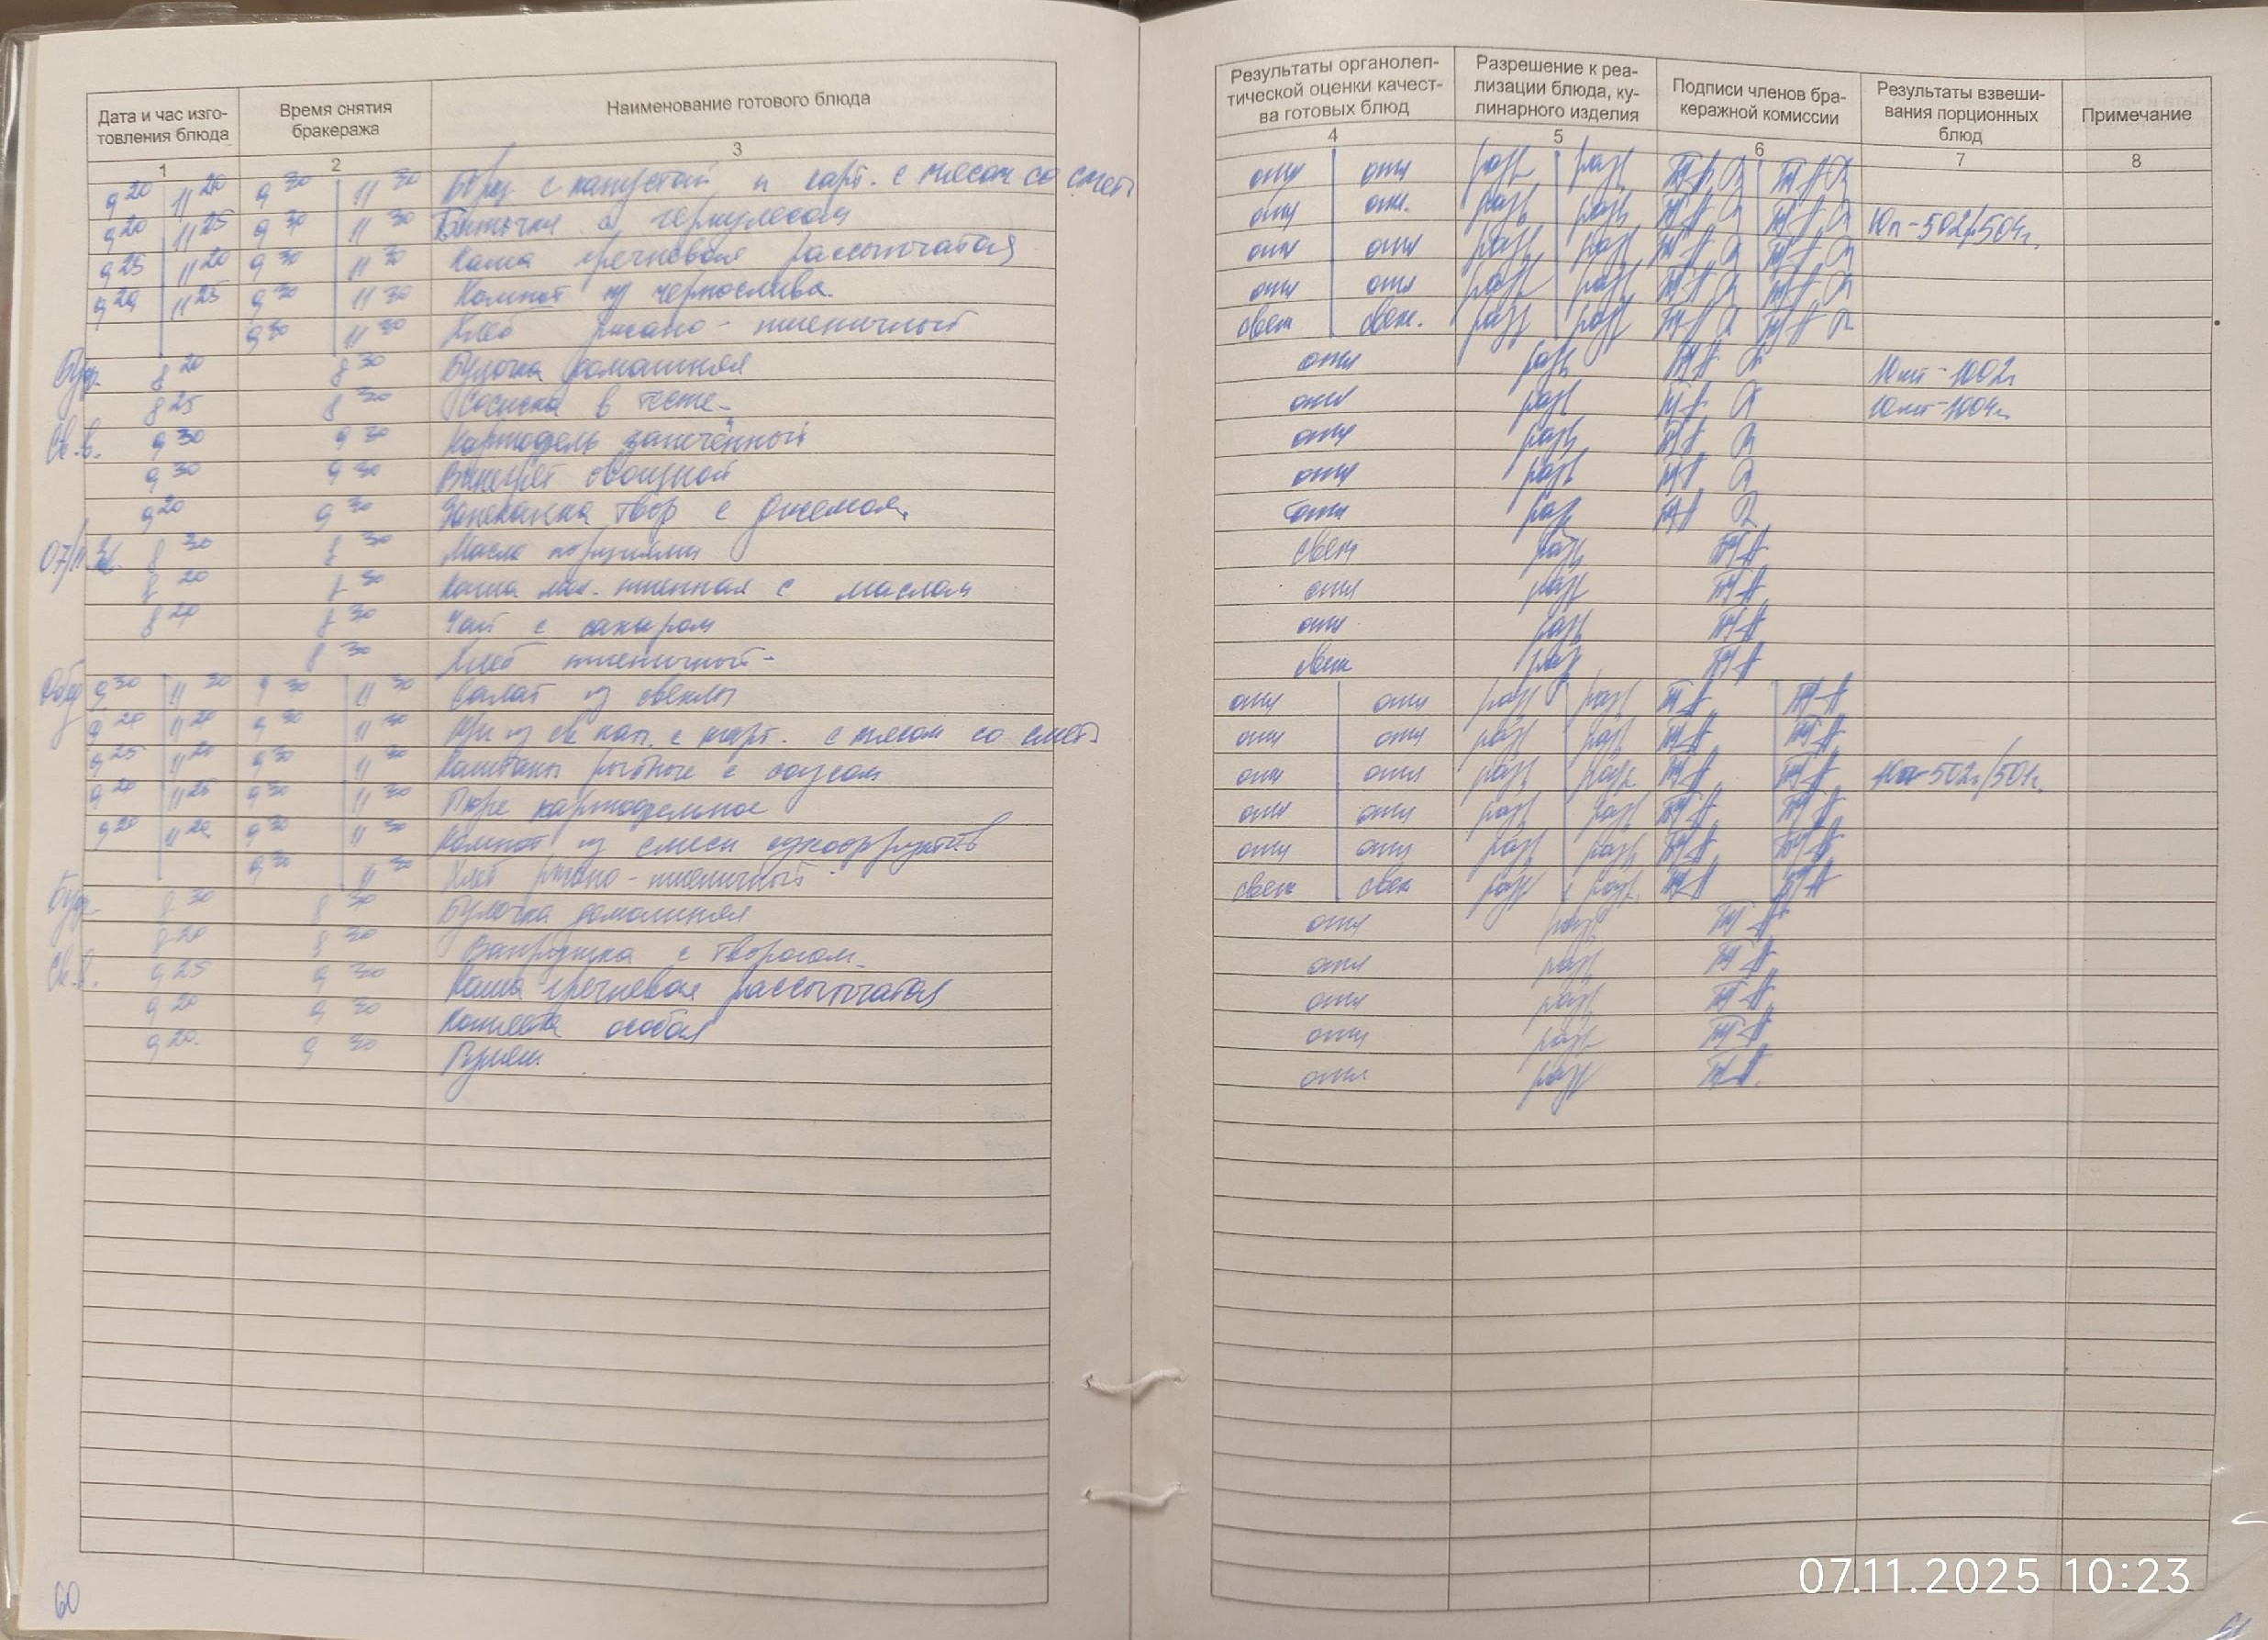 Дата и час изго-
товления блюда
Время снятия
бракеража
Наименование готового блюда
1 2 3
9 20 11 20 9 30 11 30 Борщ с капустой и карт. с мясом со смет.
9 20 11 25 9 30 11 30 Биточки с геркулесом
9 25 11 20 9 30 11 30 Каша гречневая рассыпчатая
9 20 11 25 9 30 11 30 Компот из чернослива.
9 30 11 30 Хлеб ржано-пшеничный
Буф. 8 20 8 30 Булочка домашняя
8 25 8 30 Сосиска в тесте
Св.в. 9 30 9 30 Картофель запечённый
9 30 9 30 Винегрет овощной
9 20 9 30 Запеканка твор с джемом
07/11 8 30 8 30 Масло порциями
8 20 8 30 Каша мол. пшенная с маслом
8 20 8 30 Чай с сахаром
8 30 Хлеб пшеничный
Обед 9 30 11 30 9 30 11 30 Салат из свеклы
9 20 11 20 9 30 11 30 Щи из св кап. с карт. с мясом со смет.
9 25 11 20 9 30 11 30 рыбные с соусом
9 20 11 25 9 30 11 30 Пюре картофельное
9 20 11 20 9 30 11 30 Компот из смеси сухофруктов
9 30 11 30 Хлеб ржано-пшеничный
Буф. 8 30 8 30 Булочка домашняя
8 20 8 30 Ватрушка с творогом
Св.в. 9 25 9 30 Каша гречневая рассыпчатая
9 20 9 30 Котлета особая
9 20. 9 30 Гуляш.
60
Результаты органолеп-
тической оценки качест-
ва готовых блюд
Разрешение к реа-
лизации блюда, ку-
линарного изделия
Подписи членов бра-
керажной комиссии
Результаты взвеши-
вания порционных
блюд
Примечание
4 5 6 7 8
отл отл разр разр
отл отл. разр разр 10п-502/504г.
отл отл разр разр
отл отл разр разр
свеж свеж. разр разр
отл разр 10шт-1002г
отл разр 10шт-1004г.
отл разр
отл разр
отл разр
свеж разр
отл разр
отл разр
свеж разр
отл отл разр разр
отл отл разр разр
отл отл разр разр 10п-502г/501г.
отл отл разр разр
отл отл разр разр
свеж свеж разр разр.
отл разр
отл разр
отл разр
отл разр
отл. разр
07.11.2025 10:23